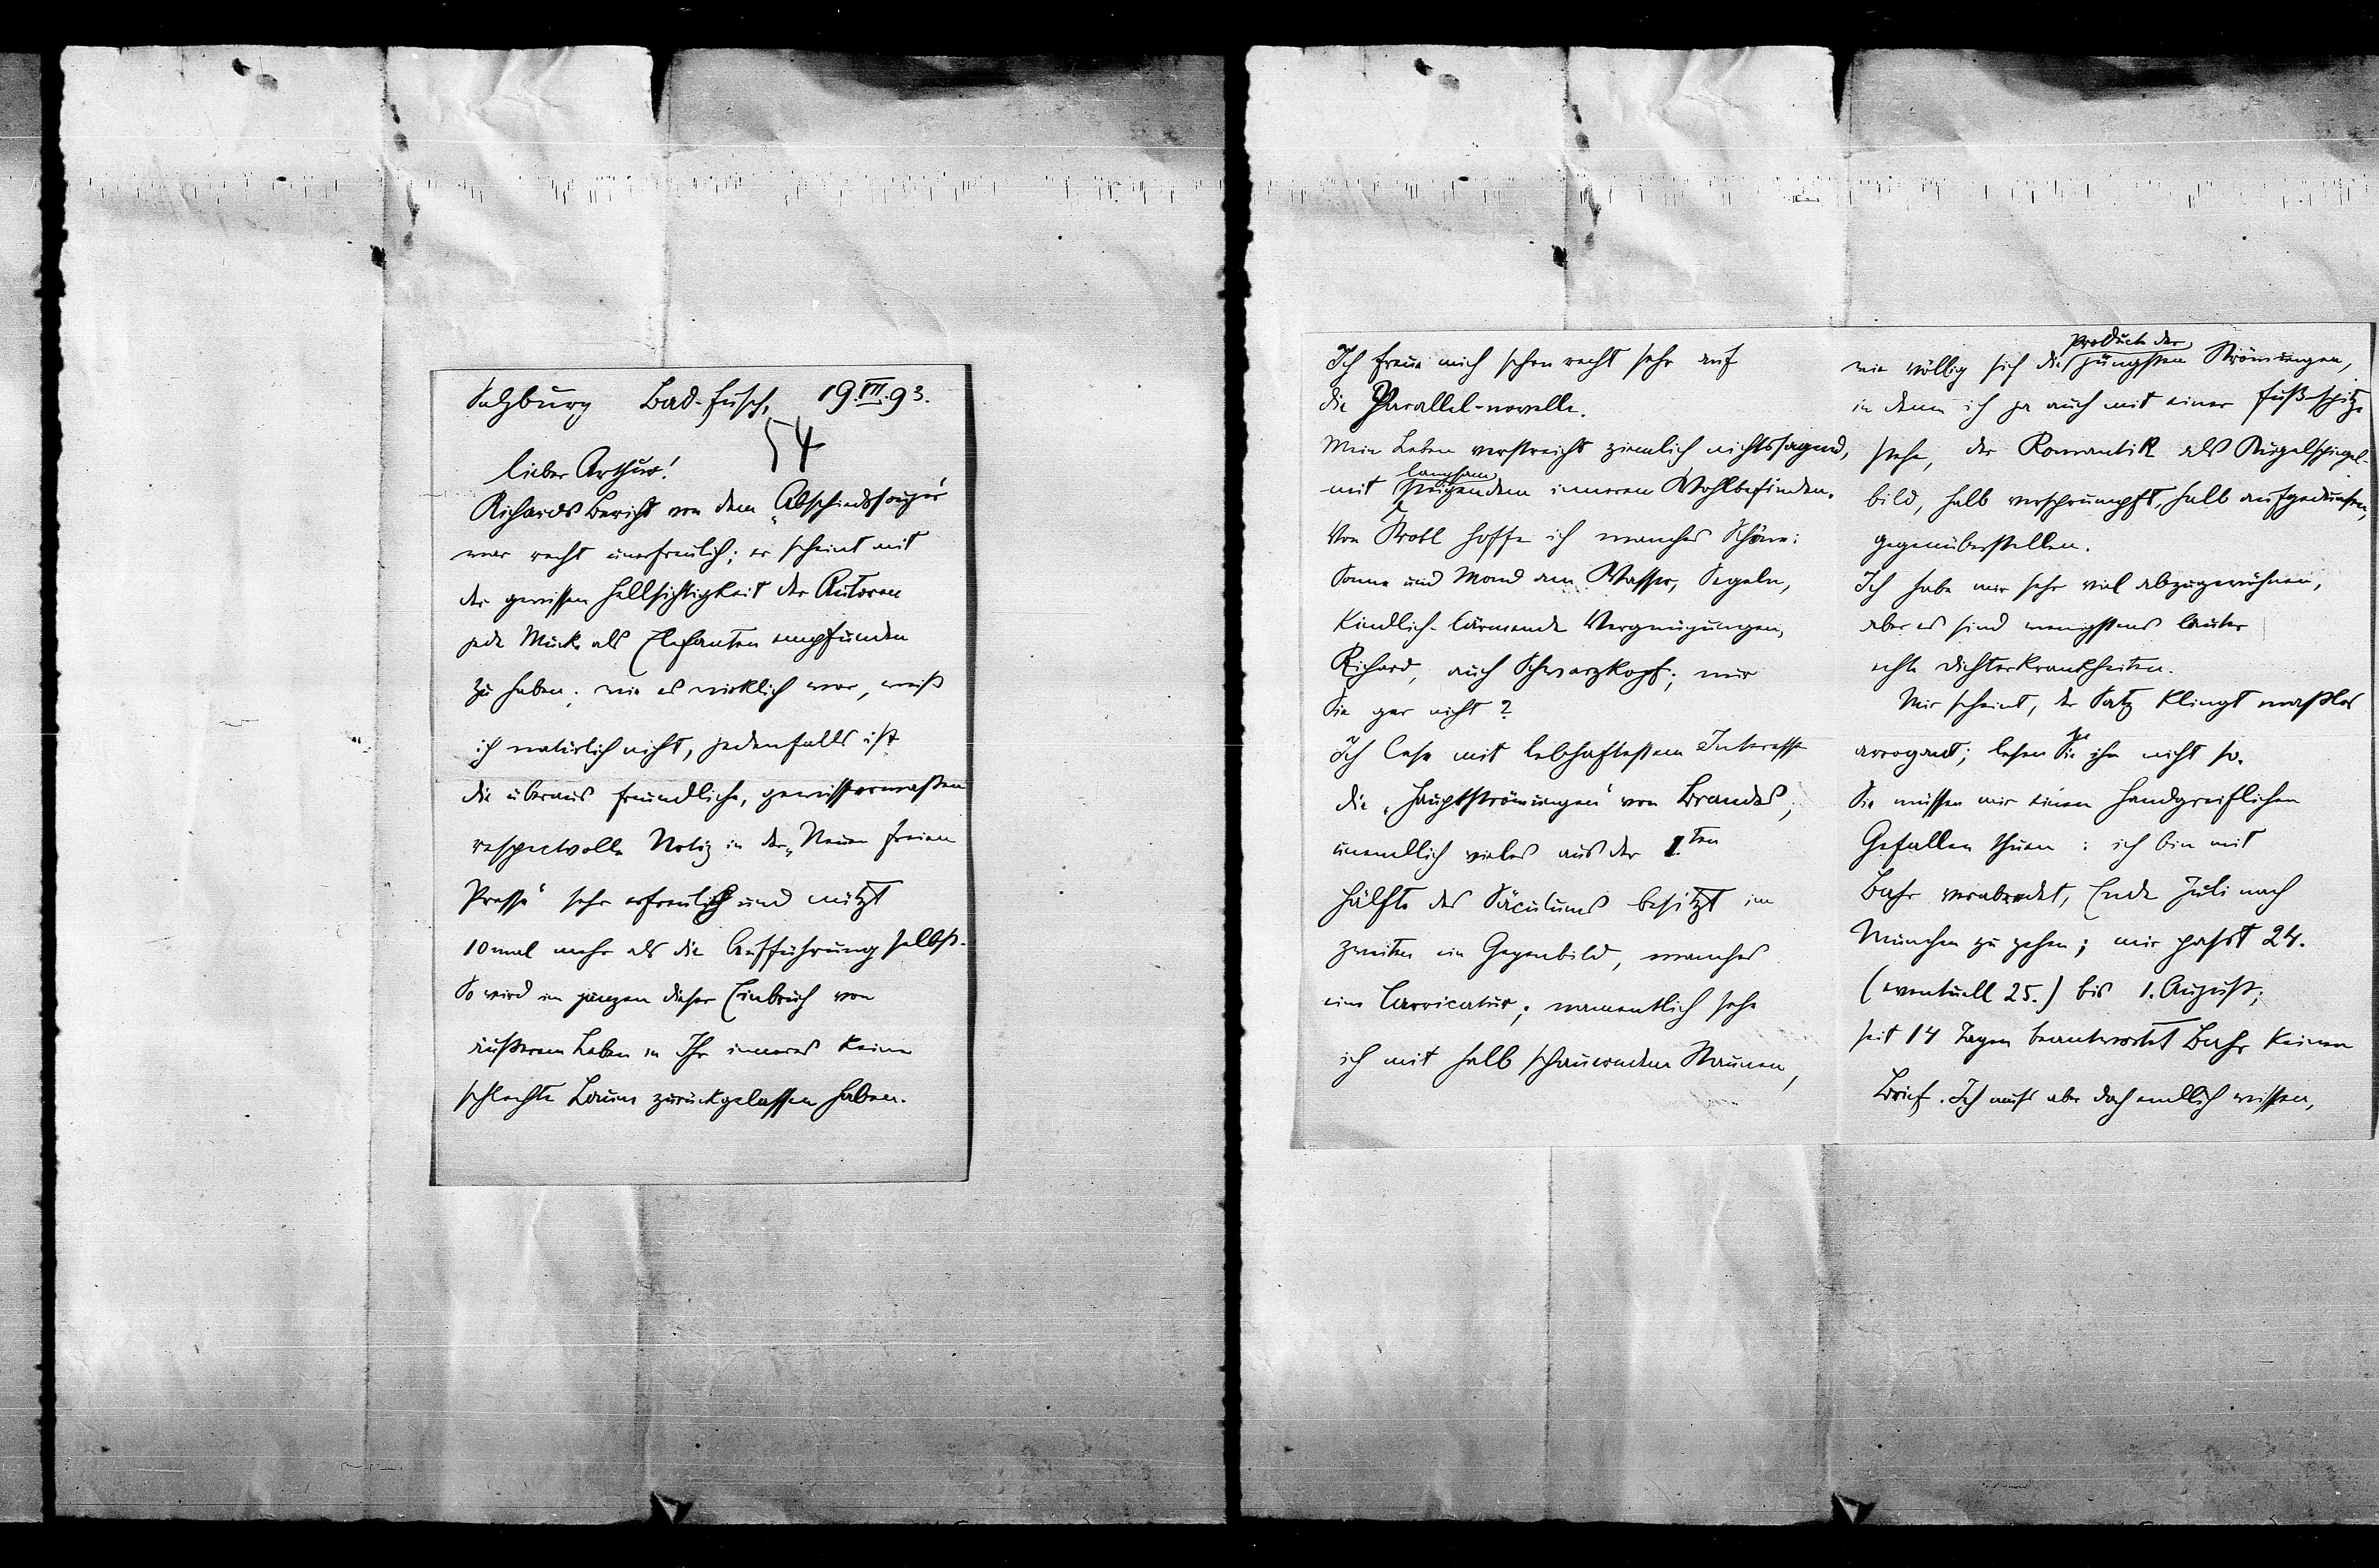 Salzburg Bad-Fusch, 19.VII.93.
54
lieber Arthur!
Richards Bericht von dem „Abschiedssouper“
war recht unerfreulich; er scheint mit
der gewissen Hellsichtigkeit der Autoren
jede Mücke als Elefanten empfunden
zu haben; wie es wirklich war, weiß
ich natürlich nicht, jedenfalls ist
die überaus freundliche, gewissermaßen
respectvolle Notiz in der „Neuen freien
Presse“ sehr erfreulich und nützt
10mal mehr als die Aufführung selbst.
So wird im ganzen dieser Einbruch von
äußerem Leben in Ihr inneres keine
schlechte Laune zurückgelassen haben.
Ich freue mich schon recht sehr auf
die Parallel-novelle.
Mein Leben verstreicht ziemlich nichtssagend,
mit langsam steigendem inneren Wohlbefinden.
Von Strobl hoffe ich manches Schöne:
Sonne und Mond am Wasser, Segeln,
kindlich-lärmende Vergnügungen,
Richard, auch Schwarzkopf; nur
Sie gar nicht?
Ich lese mit lebhaftestem Interesse
die „Hauptströmungen“ von Brandes;
unendlich vieles aus der 1.ten
Hälfte des Säculums besitzt im
zweiten ein Gegenbild, manches
eine Carricatur; namentlich sehe
ich mit halb schauerndem Staunen,
wie völlig sich die Product der jüngsten Strömungen,
in denen ich ja auch mit einer Fußspitze
stehe, der Romantik als Kugelspiegel-
bild, halb verschrumpft, halb aufgedunsen,
gegenüberstellen.
Ich habe mir sehr viel abzugewöhnen,
aber es sind wenigstens lauter
echte Dichterkrankheiten.
Mir scheint, der Satz klingt maßlos
arrogant; lesen Sie ihn nicht so.
Sie müssen mir einen handgreiflichen
Gefallen thuen: ich bin mit
Bahr verabredet, Ende Juli nach
München zu gehen; mir passt 24.
(eventuell 25.) bis 1. August;
seit 14 Tagen beantwortet Bahr keinen
Brief. Ich muß aber doch endlich wissen,